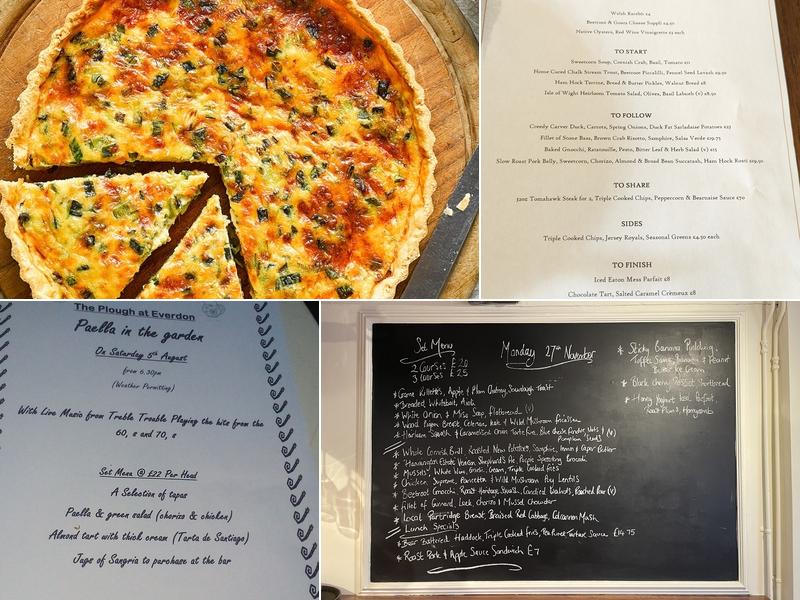 Welsh Rarebit £4
Beetroot & Goats Cheese Suppli £4.50
Native Oysters, Red Wine Vinaigrette £3 each
TO START
Sweetcorn Soup, Cornish Crab, Basil, Tomato £11
Home Cured Chalk Stream Trout, Beetroot Piccalilli, Fennel Seed Lavash £9.50
Ham Hock Terrine, Bread & Butter Pickles, Walnut Bread £8
Isle of Wight Heirloom Tomato Salad, Olives, Basil Labneh (v) £8.50
TO FOLLOW
Creedy Carver Duck, Carrots, Spring Onions, Duck Fat Sarladaise Potatoes £23
Fillet of Stone Bass, Brown Crab Risotto, Samphire, Salsa Verde £19.75
Baked Gnocchi, Ratatouille, Pesto, Bitter Leaf & Herb Salad (v) £15
Slow Roast Pork Belly, Sweetcorn, Chorizo, Almond & Broad Bean Succatash, Ham Hock Rosti £19.50
TO SHARE
32oz Tomahawk Steak for 2, Triple Cooked Chips, Peppercorn & Bearnaise Sauce £70
SIDES
Triple Cooked Chips, Jersey Royals, Seasonal Greens £4.50 each
TO FINISH
Iced Eaton Mess Parfait £8
Chocolate Tart, Salted Caramel Crémeux £8
The Plough at Everdon
Paella in the garden
On Saturday 5th August
from 6.30pm
(Weather Permitting)
With Live Music from Treble Trouble Playing the hits from the
60, s and 70, s
Set Menu @ £22 Per Head
A Selection of tapas
Paella & green salad (chorizo & chicken)
Almond tart with thick cream (Tarta de Santiago)
Jugs of Sangria to purchase at the bar
Set Menu
2 Courses £20
3 Courses £25
Monday 27th November
* Game Rillettes, Apple & Plum Chutney, Sourdough Toast
* Breaded Whitebait, Aioli
* White Onion & Miso Soup, Flatbread (v)
* Wood Pigeon Breast, Celeriac, Kale & Wild Mushroom Fricassee
* Harlequin Squash & Caramelised Onion Tarte Fine, Blue Cheese Fondue, Nuts & (v)
Pumpkin Seeds
* Whole Cornish Brill, Roasted New Potatoes, Samphire, Lemon & Caper Butter
* Estate Venison Shepherd's Pie, Purple Sprouting Broccoli
* Mussels, White Wine, Garlic, Cream, Triple Cooked Fries
* Chicken Supreme, Pancetta & Wild Mushroom Puy Lentils
* Beetroot Gnocchi, Roast Squash, Candied Walnuts, Poached Pear (v)
* Fillet of Gurnard, Leek, Chorizo & Mussel Chowder
* Local Partridge Breast, Braised Red Cabbage, Colcannon Mash
Lunch Specials
* Beer Battered Haddock, Triple Cooked Fries, Pea Puree, Tartare Sauce £14.75
* Roast Pork & Apple Sauce Sandwich £7
* Sticky Banana Pudding,
Toffee Sauce, Banana & Peanut
Butter Ice Cream
* Black Cherry Shortbread
* Honey Yoghurt Iced Parfait,
Roast Plums, Honeycomb